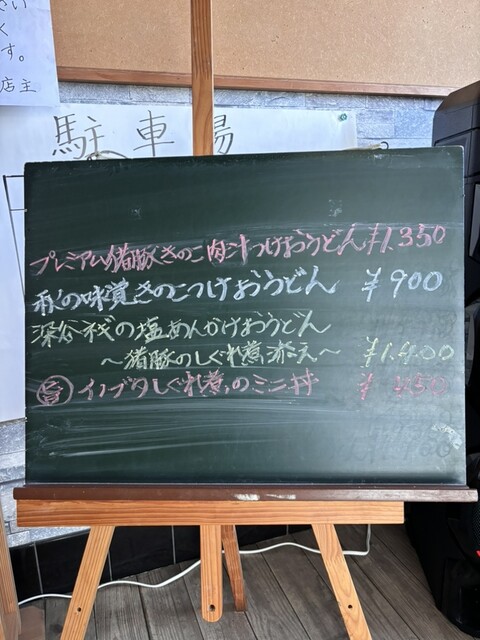 さい
く
す。
店主
駐車場
プレミアム猪豚きのこ肉汁つけおうどん ¥1,350
秋の味覚きのこつけおうどん ¥900
深谷ネギの塩あんかけおうどん
〜猪豚のしぐれ煮添え〜 ¥1,400
イノブタしぐれ煮のミニ丼 ¥450